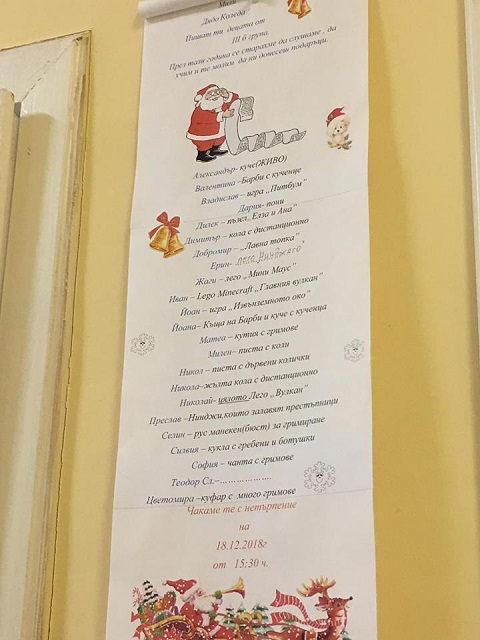 Мили
Дядо Коледа
Пишат ти децата от
III б група.
През тази година се старахме да слушаме , да
учим и те молим да ни донесеш подаръци.
Александър- куче(ЖИВО)
Валентина –Барби с кученце
Владислав – игра „Питбум"
Дария- пони
Дилек – пъзел „Елза и Ана"
Димитър – кола с дистанционно
Добромир – „Лавна топка"
Ерин- лего „Нинджаго"
Жаги – лего „Мини Маус"
Иван – Lego Minecraft „Главния вулкан"
Йоан – игра „Извънземното око"
Йоана– Къща на Барби и куче с кученца
Матеа – кутия с гримове
Милен– писта с коли
Никол – писта с дървени колички
Никола-жълта кола с дистанционно
Николай- цялото Лего „Вулкан"
Преслав –Нинджи,които залавят престъпници
Селин – рус манекен(бюст) за гримиране
Силвия – кукла с гребени и ботушки
София – чанта с гримове
Теодор Сл.–……………….
Цветомира –куфар с много гримове
Чакаме те с нетърпение
на
18.12.2018г
от 15:30 ч.